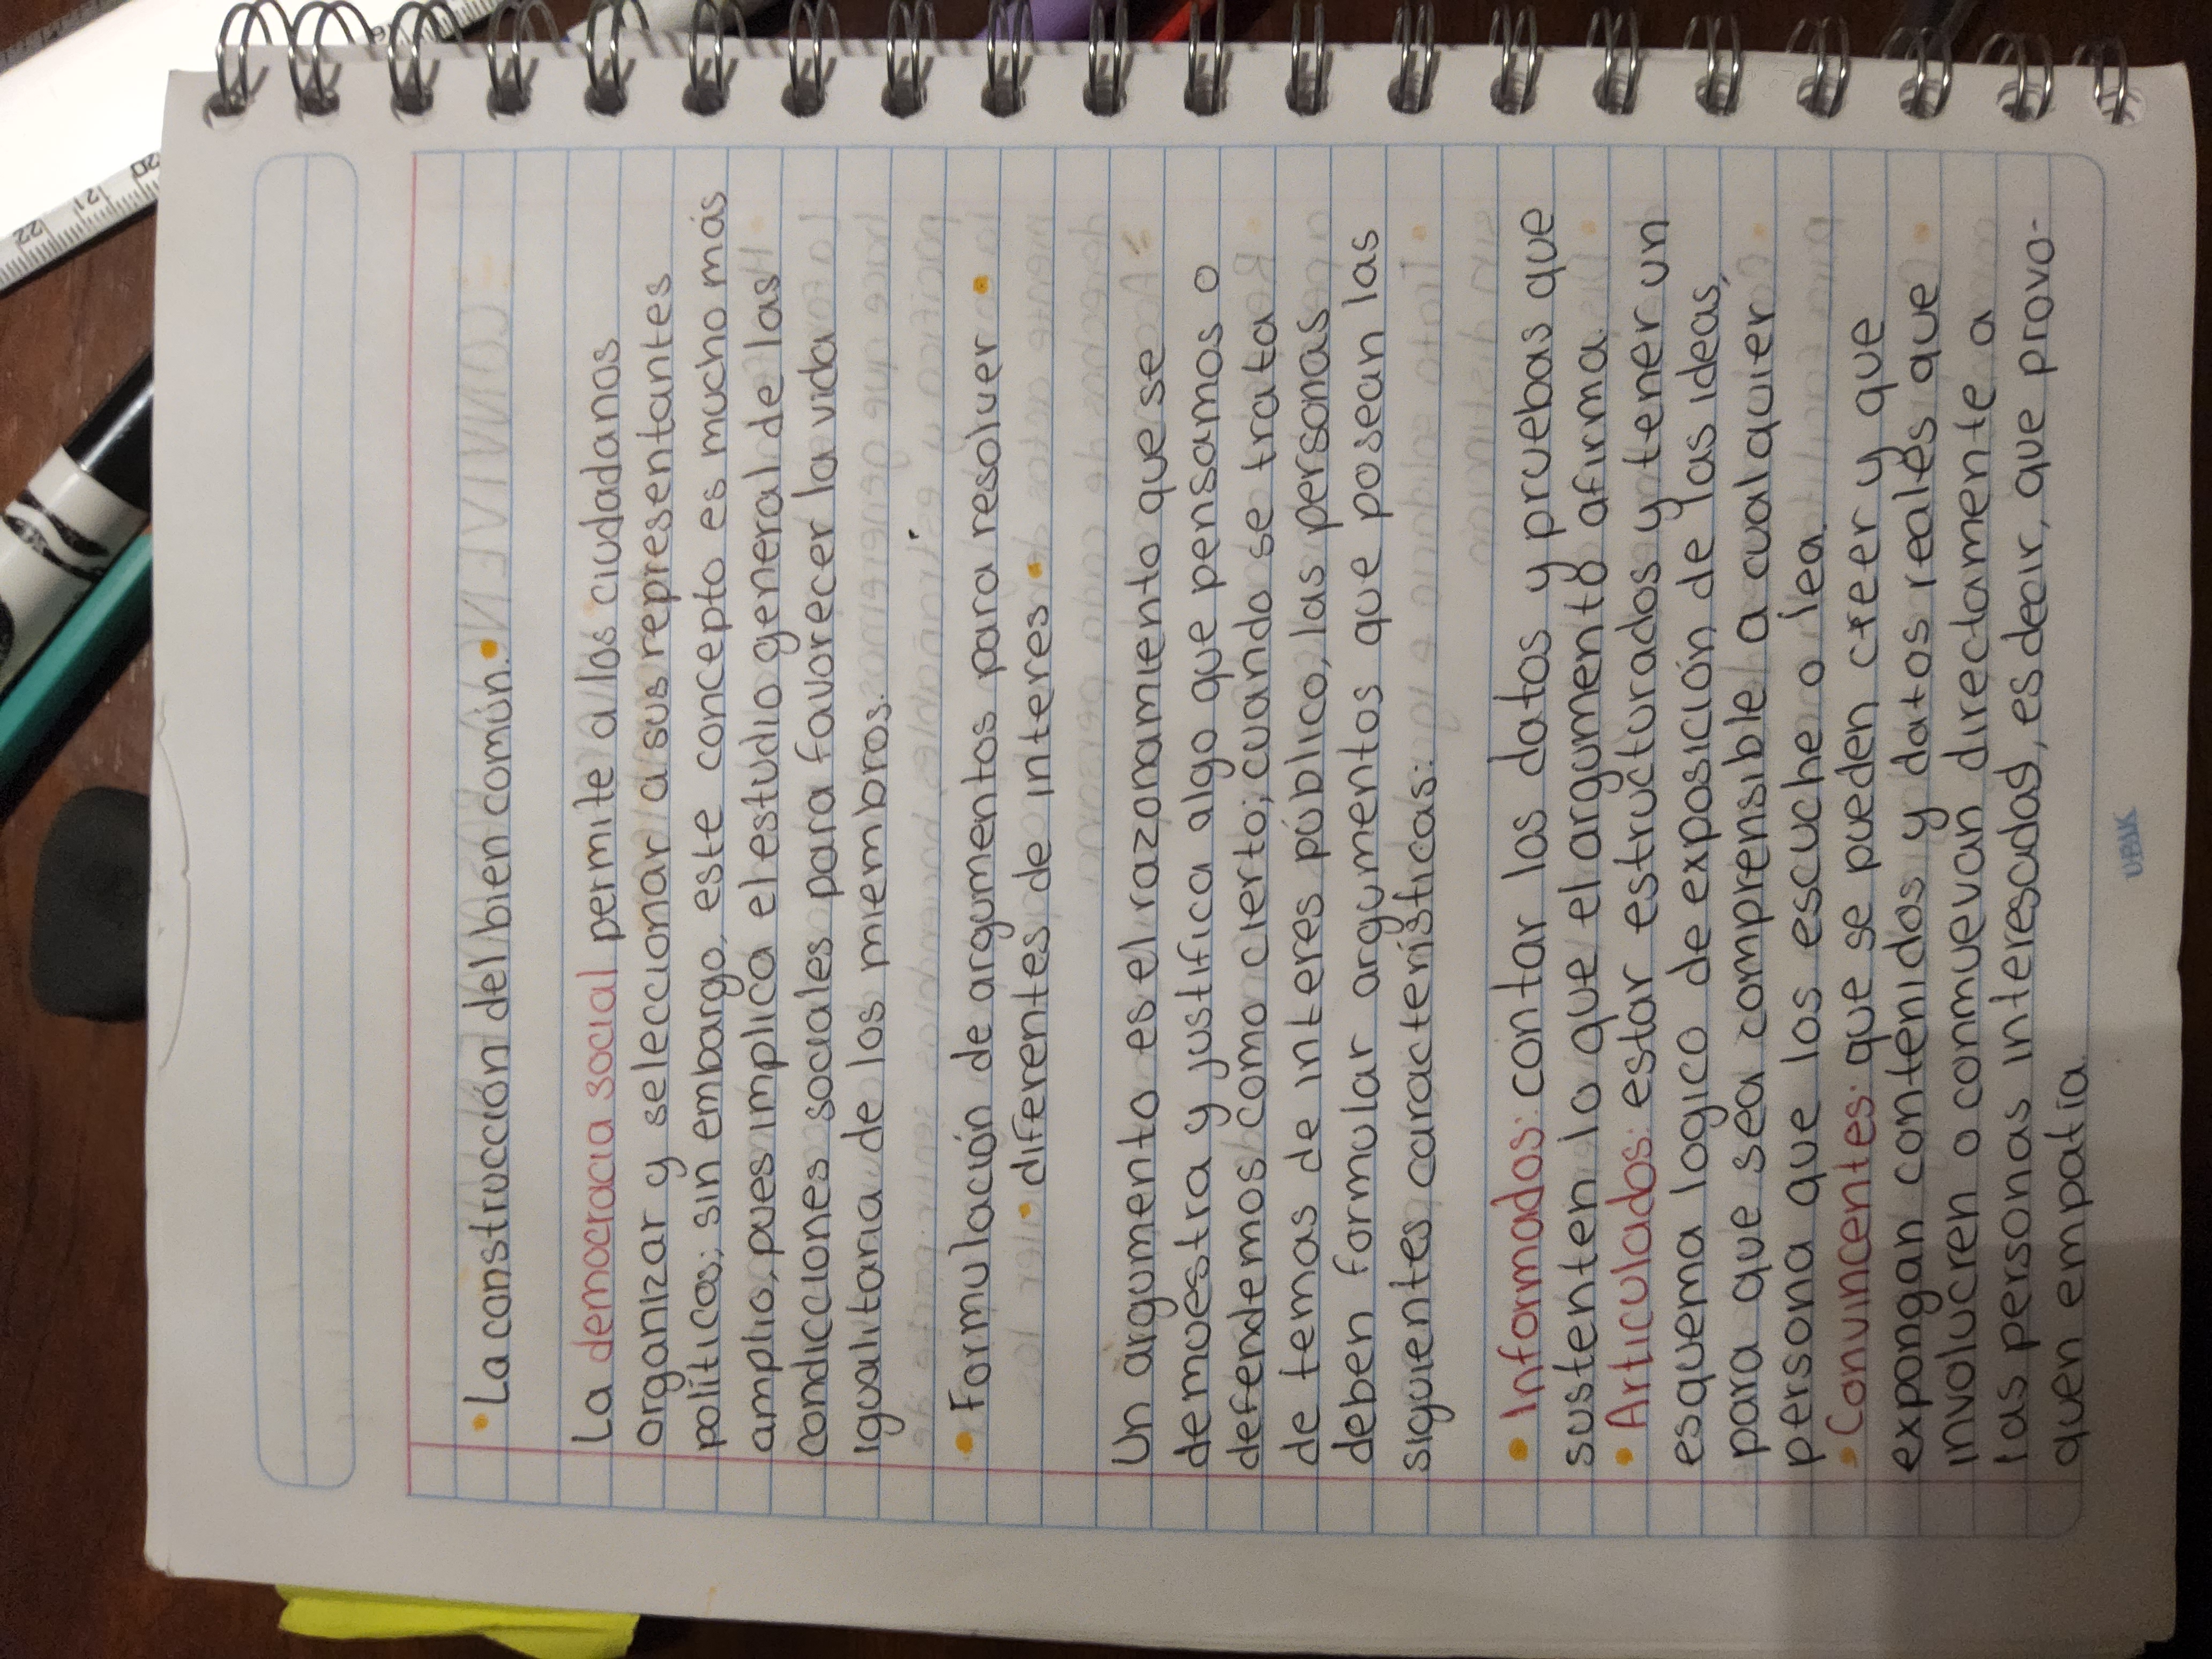 • La construcción del bien común. •
La democracia social permite a los ciudadanos
organizar y seleccionar a sus representantes
políticos; sin embargo, este concepto es mucho más
amplio, pues implica el estudio general de las
condiciones sociales para favorecer la vida
igualitaria de los miembros.
• Formulación de argumentos para resolver •
• diferentes de interes •
Un argumento es el razonamiento que se
demuestra y justifica algo que pensamos o
defendemos como cierto; cuando se trata
de temas de interes público, las personas
deben formular argumentos que posean las
siguientes caracteristicas:
• Informados: contar los datos y pruebas que
sustenten lo que el argumento afirma.
• Articulados: estar estructurados y tener un
esquema logico de exposición de las ideas,
para que sea comprensible a cualquier
persona que los escuche o lea.
• Convincentes: que se pueden creer y que
expongan contenidos y datos reales que
involucren o conmuevan directamente a
las personas interesadas, es decir, que provo-
quen empatía.
20
21
22